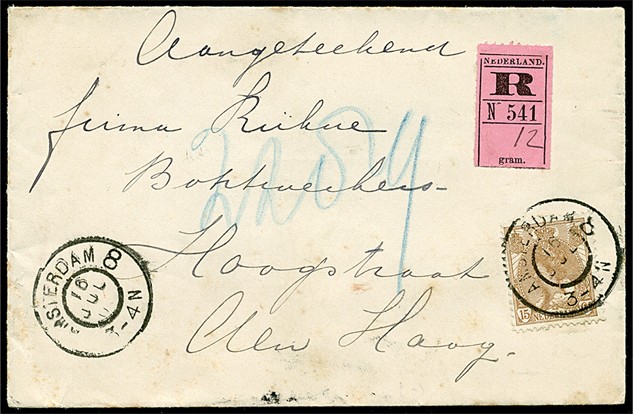 Aangeteekend
NEDERLAND.
R
N 541
12
gram.
firma
2284
Hoogstraat
den Haag.
AMSTERDAM 8
16 JUL
3-4N
AMSTERDAM 8
16
3-4N
15 NEDERLAND